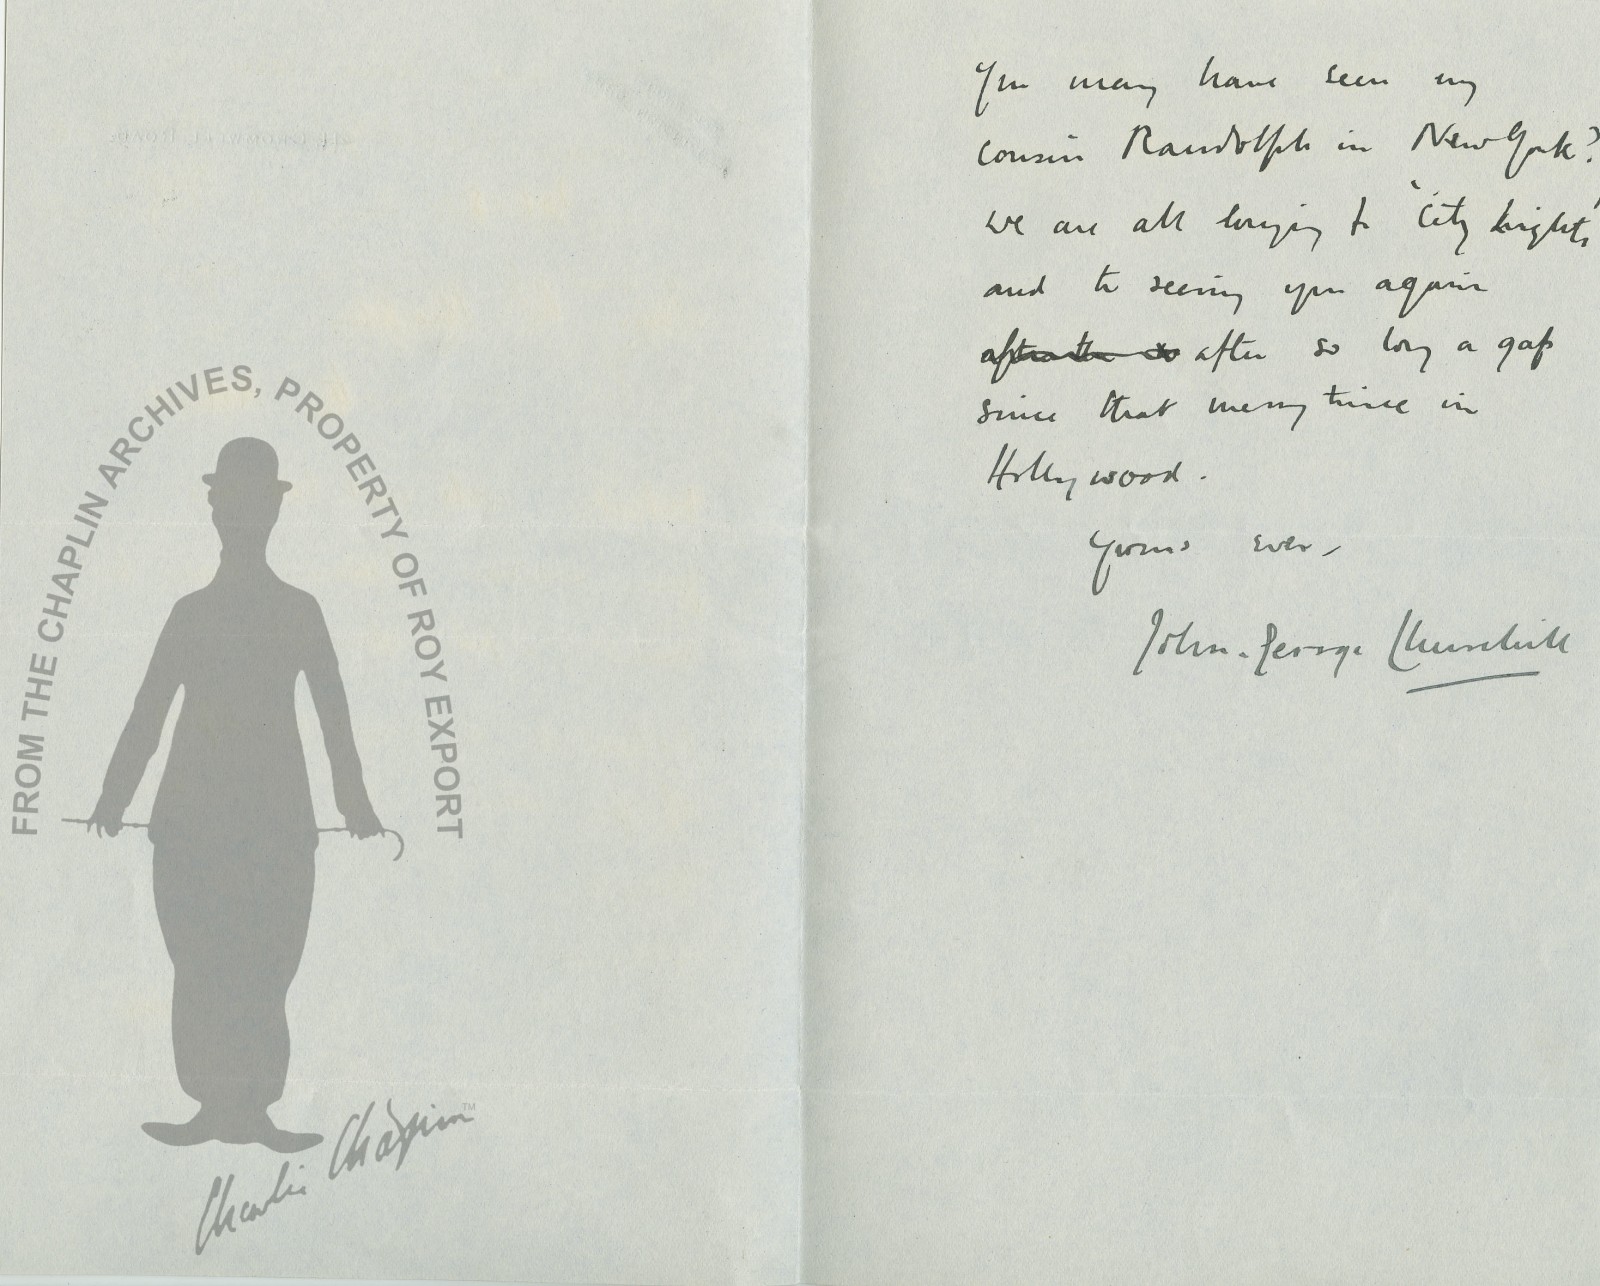 FROM THE CHAPLIN ARCHIVES, PROPERTY OF ROY EXPORT
Charlie Chaplin™
You may have seen my
cousin Randolph in New York?
We are all longing to "City Lights"
and to seeing you again
after so long a gap
since that merry time in
Hollywood.
Yours ever,
John-George Churchill